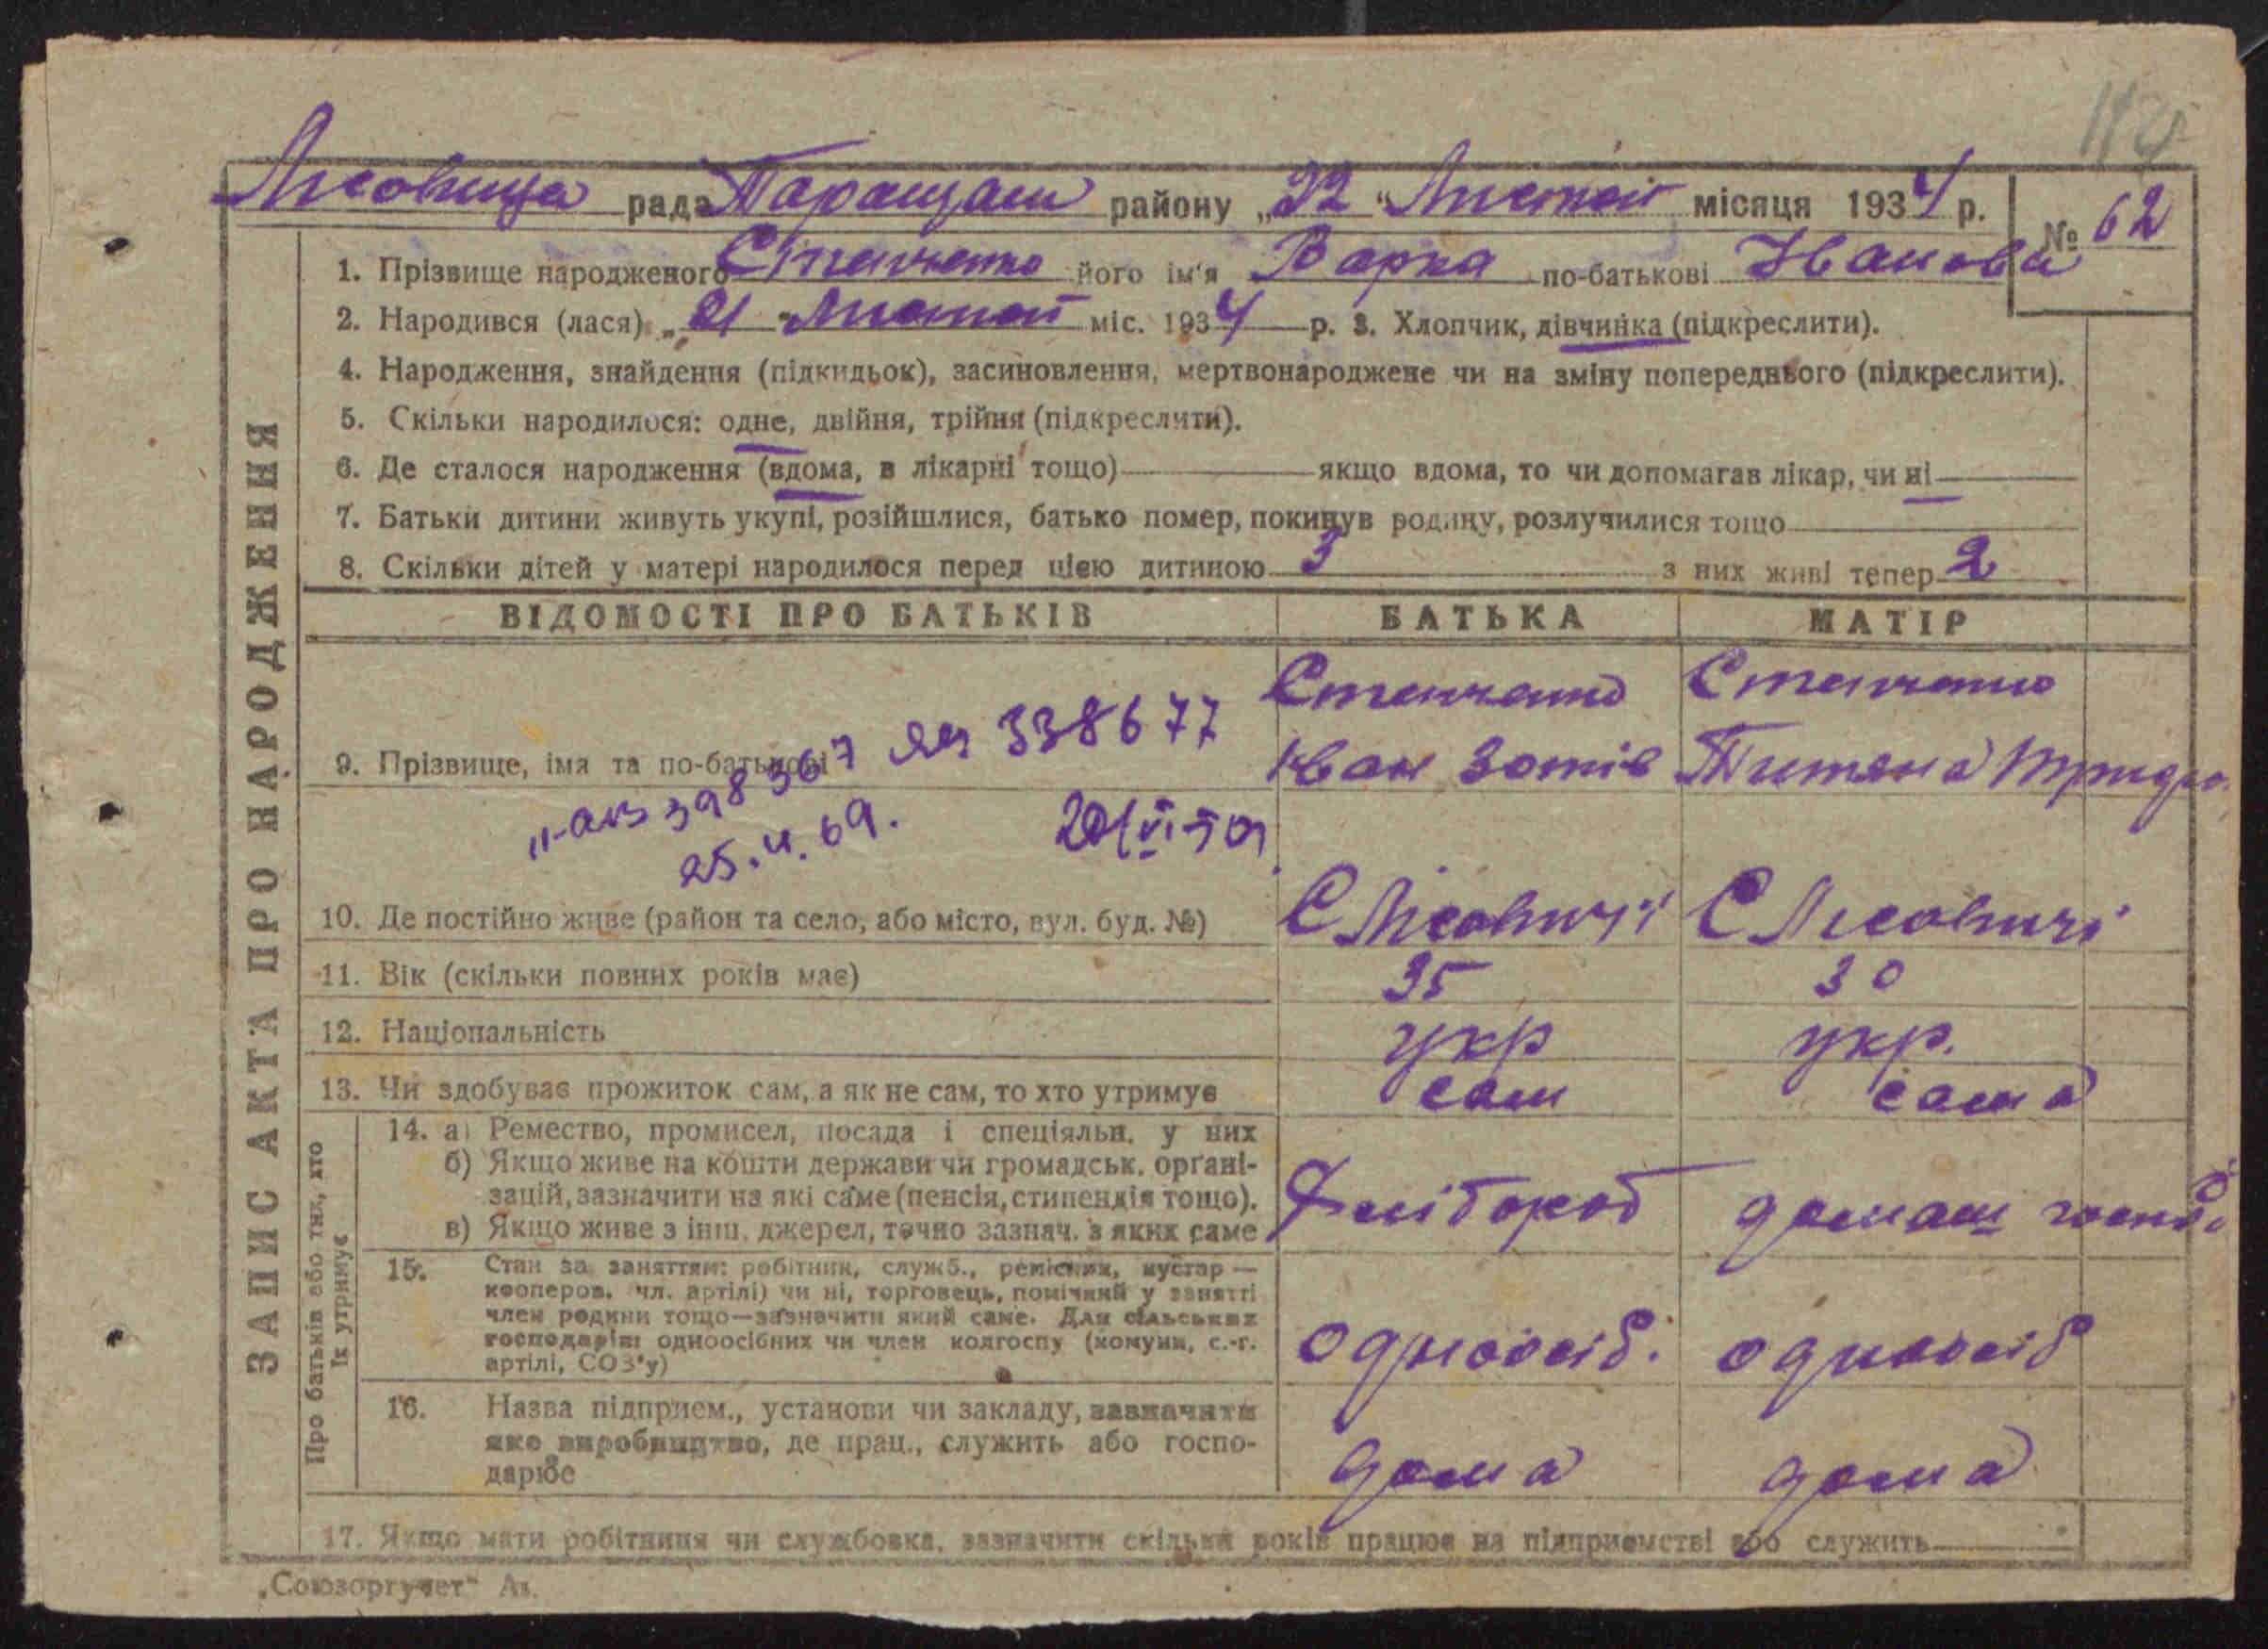 Лісовицька рада Таращан району „22“ Листопа місяця 1934 р.
№ 62
1. Прізвище народженого Степченко його ім'я Варка по-батькові Іванова
2. Народився (лася) „21“ Листопа міс. 1934 р. 3. Хлопчик, дівчинка (підкреслити).
4. Народження, знайдення (підкидьок), засиновлення, мертвонароджене чи на зміну попереднього (підкреслити).
5. Скільки народилося: одне, двійня, трійня (підкреслити).
6. Де сталося народження (вдома, в лікарні тощо) якщо вдома, то чи допомагав лікар, чи ні
7. Батьки дитини живуть укупі, розійшлися, батько помер, покинув родину, розлучилися тощо
8. Скільки дітей у матері народилося перед цією дитиною 3 з них живі тепер 2
ЗАПИС АКТА ПРО НАРОДЖЕННЯ
ВІДОМОСТІ ПРО БАТЬКІВ БАТЬКА МАТІР
9. Прізвище, імя та по-батькові
Степченко Степченко
Іван Зотів Титяна
398367 338677
25.4.69. 20/VI-50
10. Де постійно живе (район та село, або місто, вул. буд. №) С Лісовичі С Лісовичі
11. Вік (скільки повних років має) 35 30
12. Національність укр укр.
13. Чи здобуває прожиток сам, а як не сам, то хто утримує сам сама
Про батьків або тих, хто їх утримує
14. а) Ремество, промисел, посада і спеціяльн. у них
б) Якщо живе на кошти держави чи громадськ. орґані-
зацій, зазначити на які саме (пенсія, стипендія тощо).
в) Якщо живе з інш. джерел, точно зазнач. з яких саме
хлібороб домаш господ
15. Стан за заняттям: робітник, служб., ремісник, кустар —
кооперов. чл. артілі) чи ні, торговець, помічний у занятті
член родини тощо—зазначити який саме. Для сільських
господарів: одноосібних чи член колгоспу (комуни, с.-г.
артілі, СОЗ'у)
одноосіб. одноосіб
16. Назва підприєм., установи чи закладу, зазначити
яке виробництво, де прац., служить або госпо-
дарює
дома дома
17. Якщо мати робітниця чи службовка, зазначити скільки років працює на підприємстві або служить
„Союзоргучет“